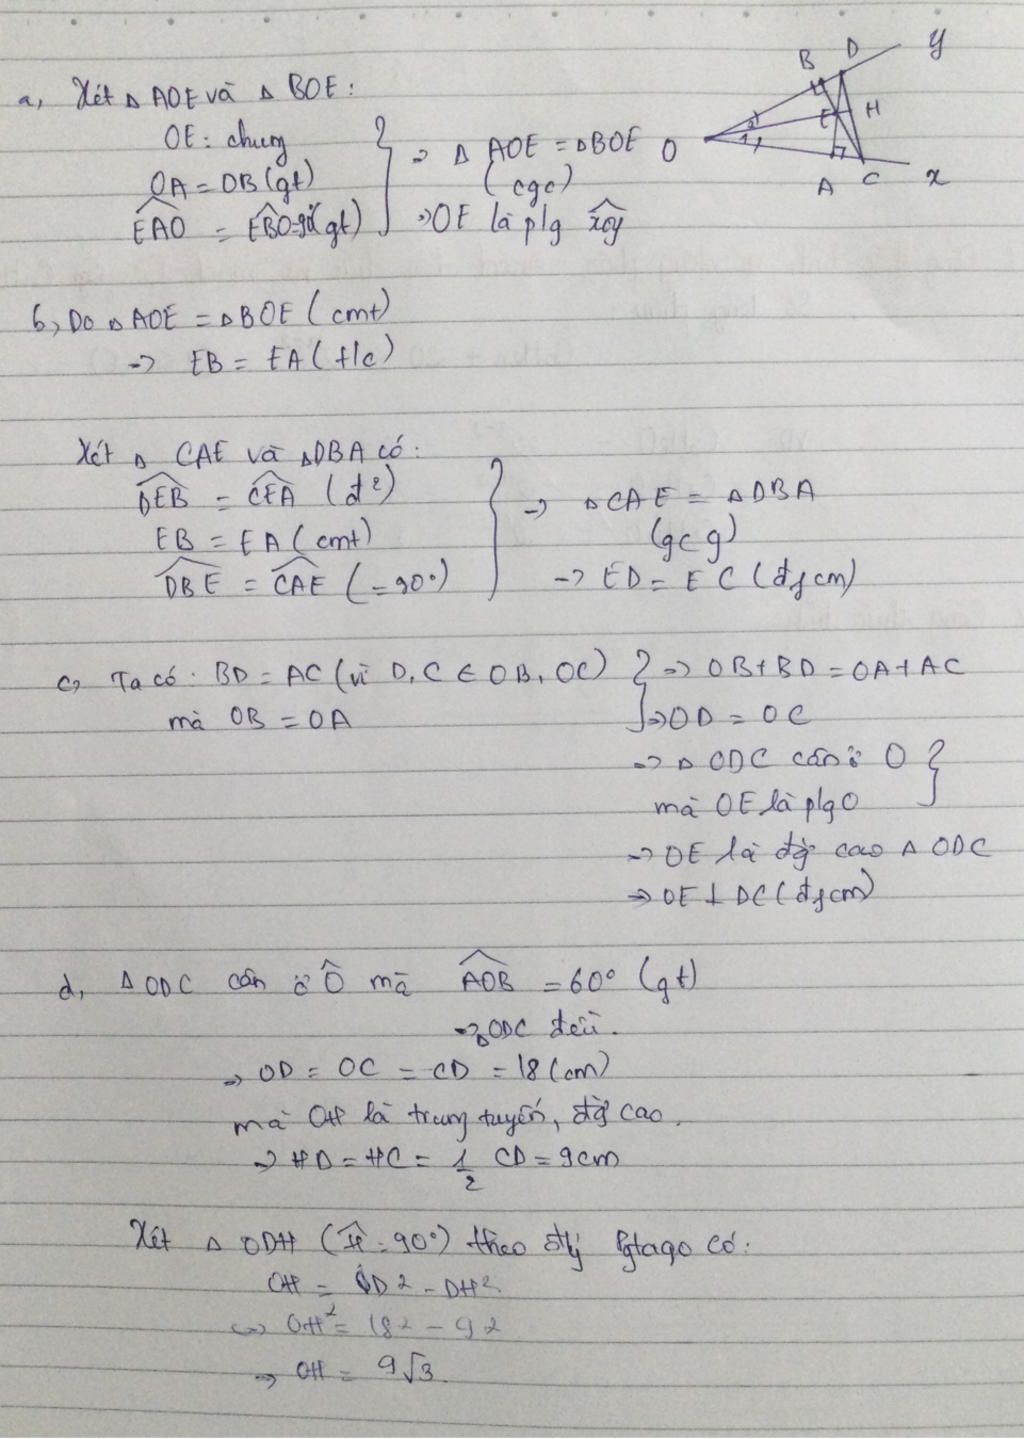 y
B D
H
E
O
A C x
a, Xét Δ AOE và Δ BOE:
OE: chung
OA = OB (gt)
EAO = EBO = 90° (gt)
=> Δ AOE = ΔBOE
(cgc)
=> OE là plg xOy
b, Do Δ AOE = Δ BOE (cmt)
=> EB = EA (t/c)
Xét Δ CAE và ΔDBA có:
DEB = CEA (đ²)
EB = EA (cmt)
DBE = CAE (= 90°)
=> Δ CAE = Δ DBA
(gcg)
=> ED = EC (đfcm)
c, Ta có: BD = AC (vì D, C ∈ OB, OC)
mà OB = OA
=> OB + BD = OA + AC
=> OD = OC
=> Δ ODC cân ở O
mà OE là plg O
=> OE là đg cao Δ ODC
=> OE ⊥ DC (đfcm)
d, Δ ODC cân ở Ô mà AOB = 60° (gt)
=> Δ ODC đều.
=> OD = OC = CD = 18 (cm)
mà OH là trung tuyến, đg cao.
=> HD = HC = 1/2 CD = 9cm
Xét Δ ODH (Ĥ = 90°) theo đlý Pytago có:
OH = OD² - DH²
<=> OH² = 18² - 9²
=> OH = 9√3.